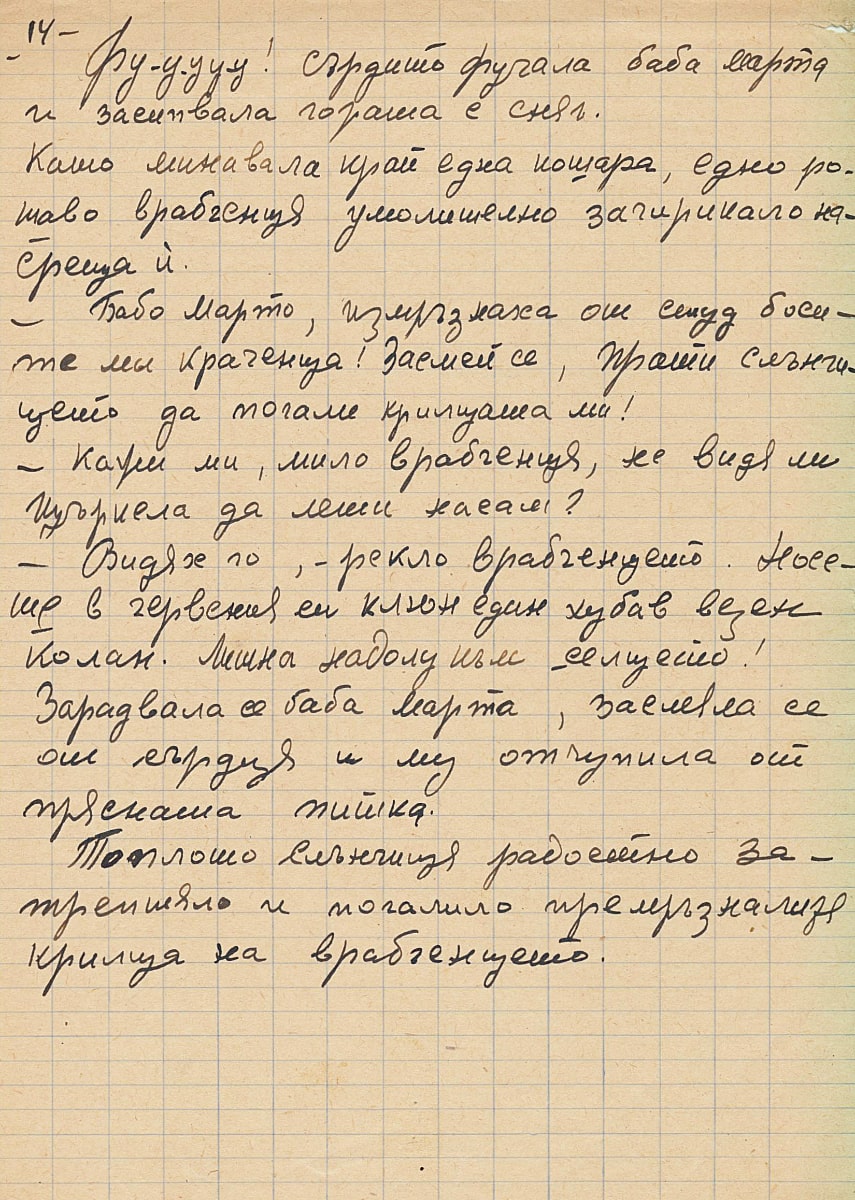 - 14 -
Фу-у-ууу! сърдито фучала баба Марта
и засипвала гората с сняг.
Като минавала край една кошара, едно ро-
шаво врабченця умолително зачирикало на-
среща ѝ.
- Бабо Марто, измръзнаха от студ боси-
те ми краченца! Засмей се, прати слънчи-
цето да погали крилцата ми!
- Кажи ми, мило врабченця, не видя ли
Щъркела да лети насам?
- Видях го, - рекло врабченцето. Носе-
ше в червения си клюн един хубав везен
колан. Литна надолу към селцето!
Зарадвала се баба Марта, засмяла се
от сърдця и му отчупила от
прясната питка.
Топлото слънчиця радостно за-
трептяло и погалило премръзналите
крилца на врабченцето.